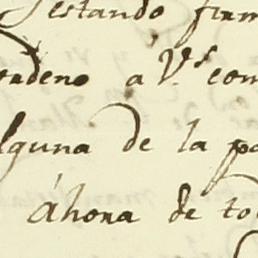 estando firm
ordeno á V.s com
lguna de la pa
áhora de tod